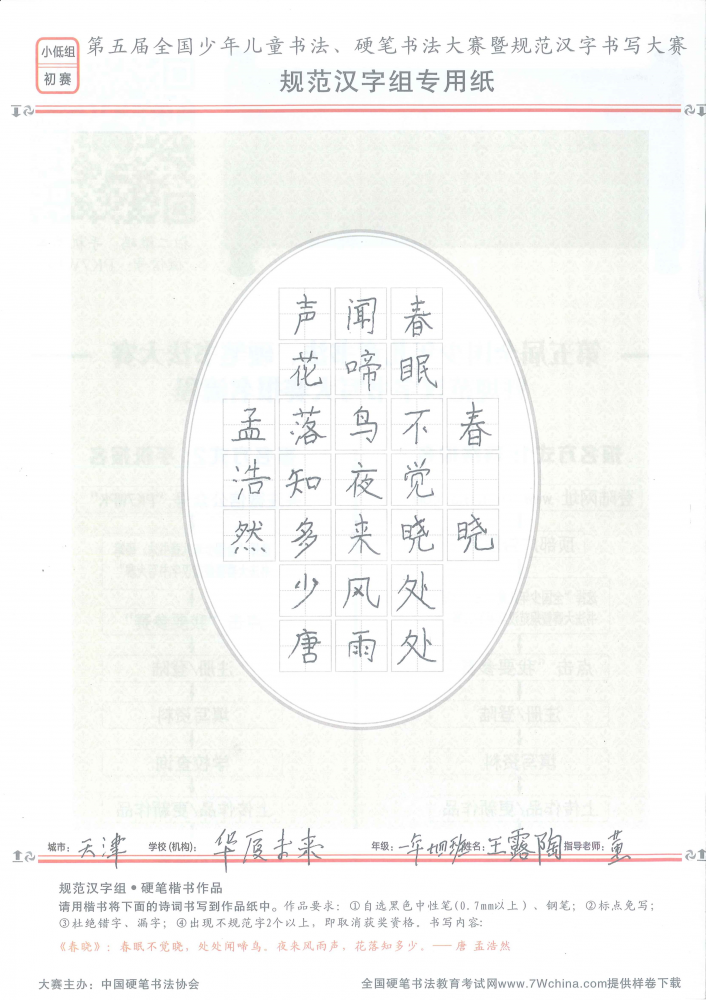 小低组
初赛
第五届全国少年儿童书法、硬笔书法大赛暨规范汉字书写大赛
规范汉字组专用纸
春晓
春眠不觉晓处处
闻啼鸟夜来风雨
声花落知多少唐
孟浩然
城市：天津 学校(机构)：华厦未来 年级：一年四班 姓名：王露陶 指导老师：董
规范汉字组·硬笔楷书作品
请用楷书将下面的诗词书写到作品纸中。作品要求：①自选黑色中性笔(0.7mm以上)、钢笔；②标点免写；
③杜绝错字、漏字；④出现不规范字2个以上，即取消获奖资格。书写内容：
《春晓》：春眠不觉晓，处处闻啼鸟。夜来风雨声，花落知多少。——唐 孟浩然
大赛主办：中国硬笔书法协会 全国硬笔书法教育考试网www.7Wchina.com提供样卷下载